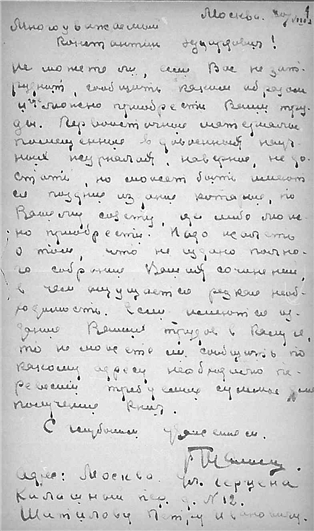 Москва.
Многоуважаемый
Константин Эдуардович!
Не можете ли, если Вас не зат-
руднит, сообщить каким образом
можно приобрести Ваши тру-
ды. Первоисточные материалы
помещенные в довоенной науч-
ных журналах, наверное, не до-
стать, но может быть имеют-
ся поздние издания которые, по
Вашему совету, где либо мож-
но приобрести. Надо жалеть
о том, что не издано полно-
го собрания Ваших сочинений,
в чем ощущается редкая необ-
ходимость. Если имеются из-
дания Ваших трудов в Калуге,
то не можете ли сообщить по
какому адресу необходимо пе-
ревести требуемые суммы для
получения книг.
С глубоким уважением.
Адрес: Москва. ул. Герцена
Калашный пер. д. №12.
Шипилову Петру Ивановичу.